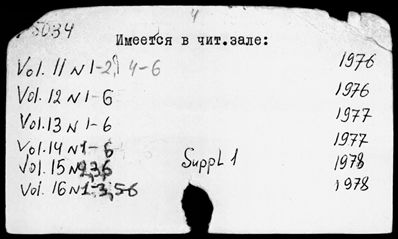 4
P5034
Имеется в чит.зале:
Vol. 11 N 1-2, 4-6 1976
Vol. 12 N 1-6 1976
Vol. 13 N 1-6 1977
Vol. 14 N 1-6 1977
Vol. 15 N 2,3,6 Suppl 1 1978
Vol. 16 N 1-3, 5-6 1978